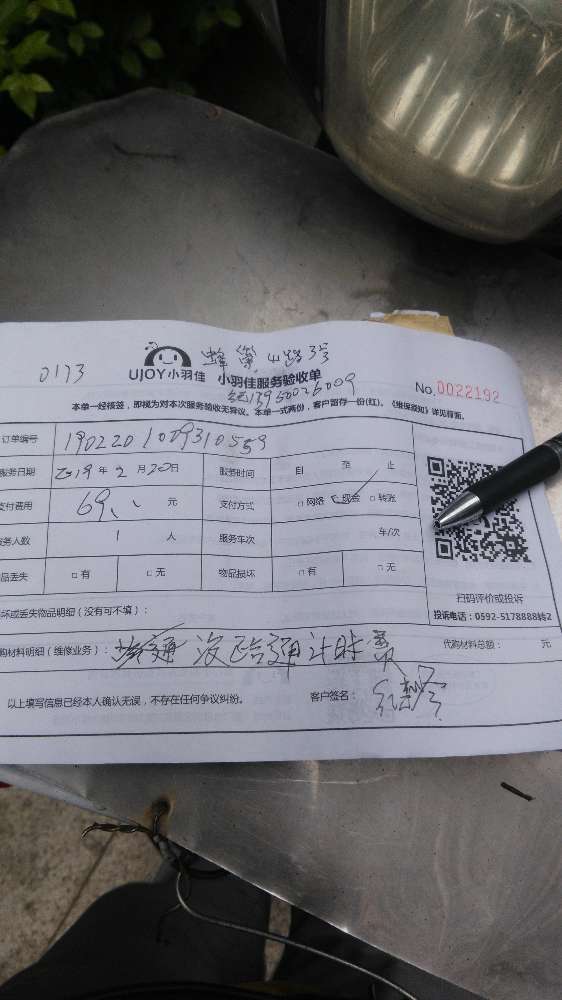 0173
蜂巢山路3号
UJOY小羽佳 小羽佳服务验收单
13960026009
No.0022192
本单一经核签，即视为对本次服务验收无异议。本单一式两份，客户留存一份(红)。《维保须知》详见背面。
订单编号
服务日期 2019年2月20日 服务时间 自 至 止
支付费用 69 元 支付方式 □网络 □现金 □转账
务人数 1 人 服务车次 车/次
品丢失 □有 □无 物品损坏 □有 □无
扫码评价或投诉
投诉电话：0592-5178888转2
坏或丢失物品明细（没有可不填）：
购材料明细（维修业务）： 没疏通计时费 代购材料总额： 元
以上填写信息已经本人确认无误，不存在任何争议纠纷。 客户签名：